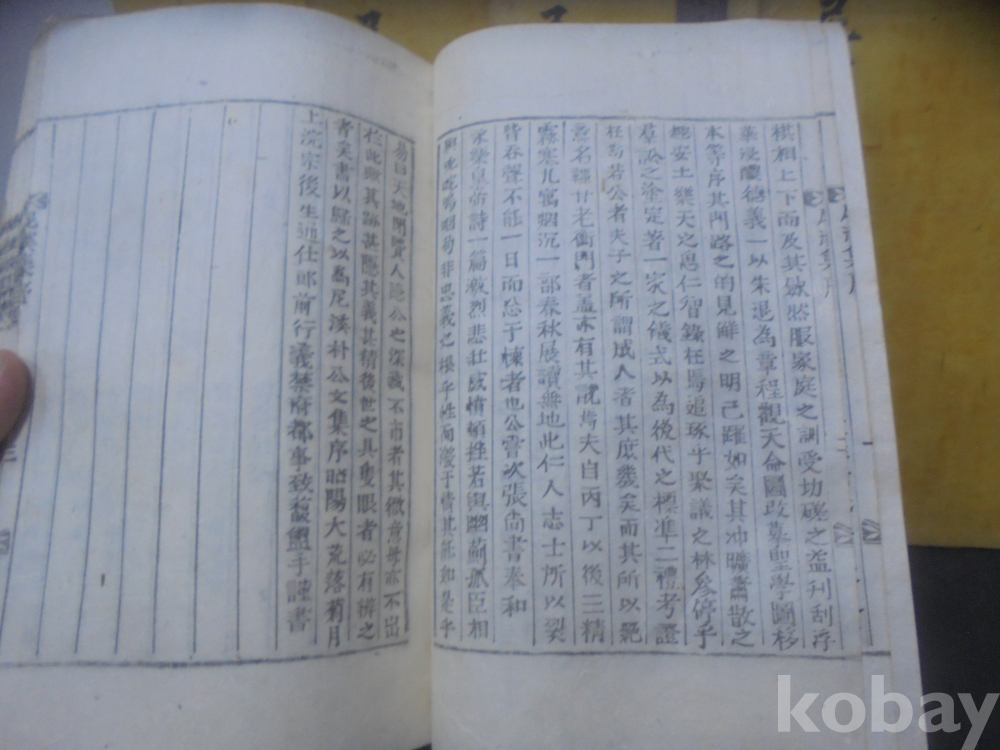 棋相上下而及其歛然服家庭之訓受切磋之益刊刮浮
華浸醲德義一以朱退為章程觀天命圖改纂聖學圖移
本等序其門路之的見鮮之明己躍如矣其冲曠蕭散之
趣安土樂天之
仁智錄
焉追琢乎聚議之林參停乎
訟之塗定著一家之儀式以為後代之標準二禮考證
在焉若公者夫子之所謂成人者其庶幾矣而其所以
名
老
者盖未有其說焉夫自丙丁以後三精
霧塞九
烟沉一部春秋展讀無地此仁人志士所以裂
眥吞聲不能一日而忘于
者也公嘗次張尚書奉和
永樂皇帝詩一篇激烈悲壯感憤頓挫若與幽薊孤臣相
嗚呼
苟非思義之根乎性而發于情其能如是乎
易曰天地閉賢人隱公之深藏不市者其微意毋亦不出
於此
其跡甚隱其義甚精後世之具隻眼者必有辨之
者矣書以歸之以為尼溪朴公文集序昭陽大荒落菊月
上浣宗後生通仕郎前行義禁府都事致馥盥手謹書
kobay